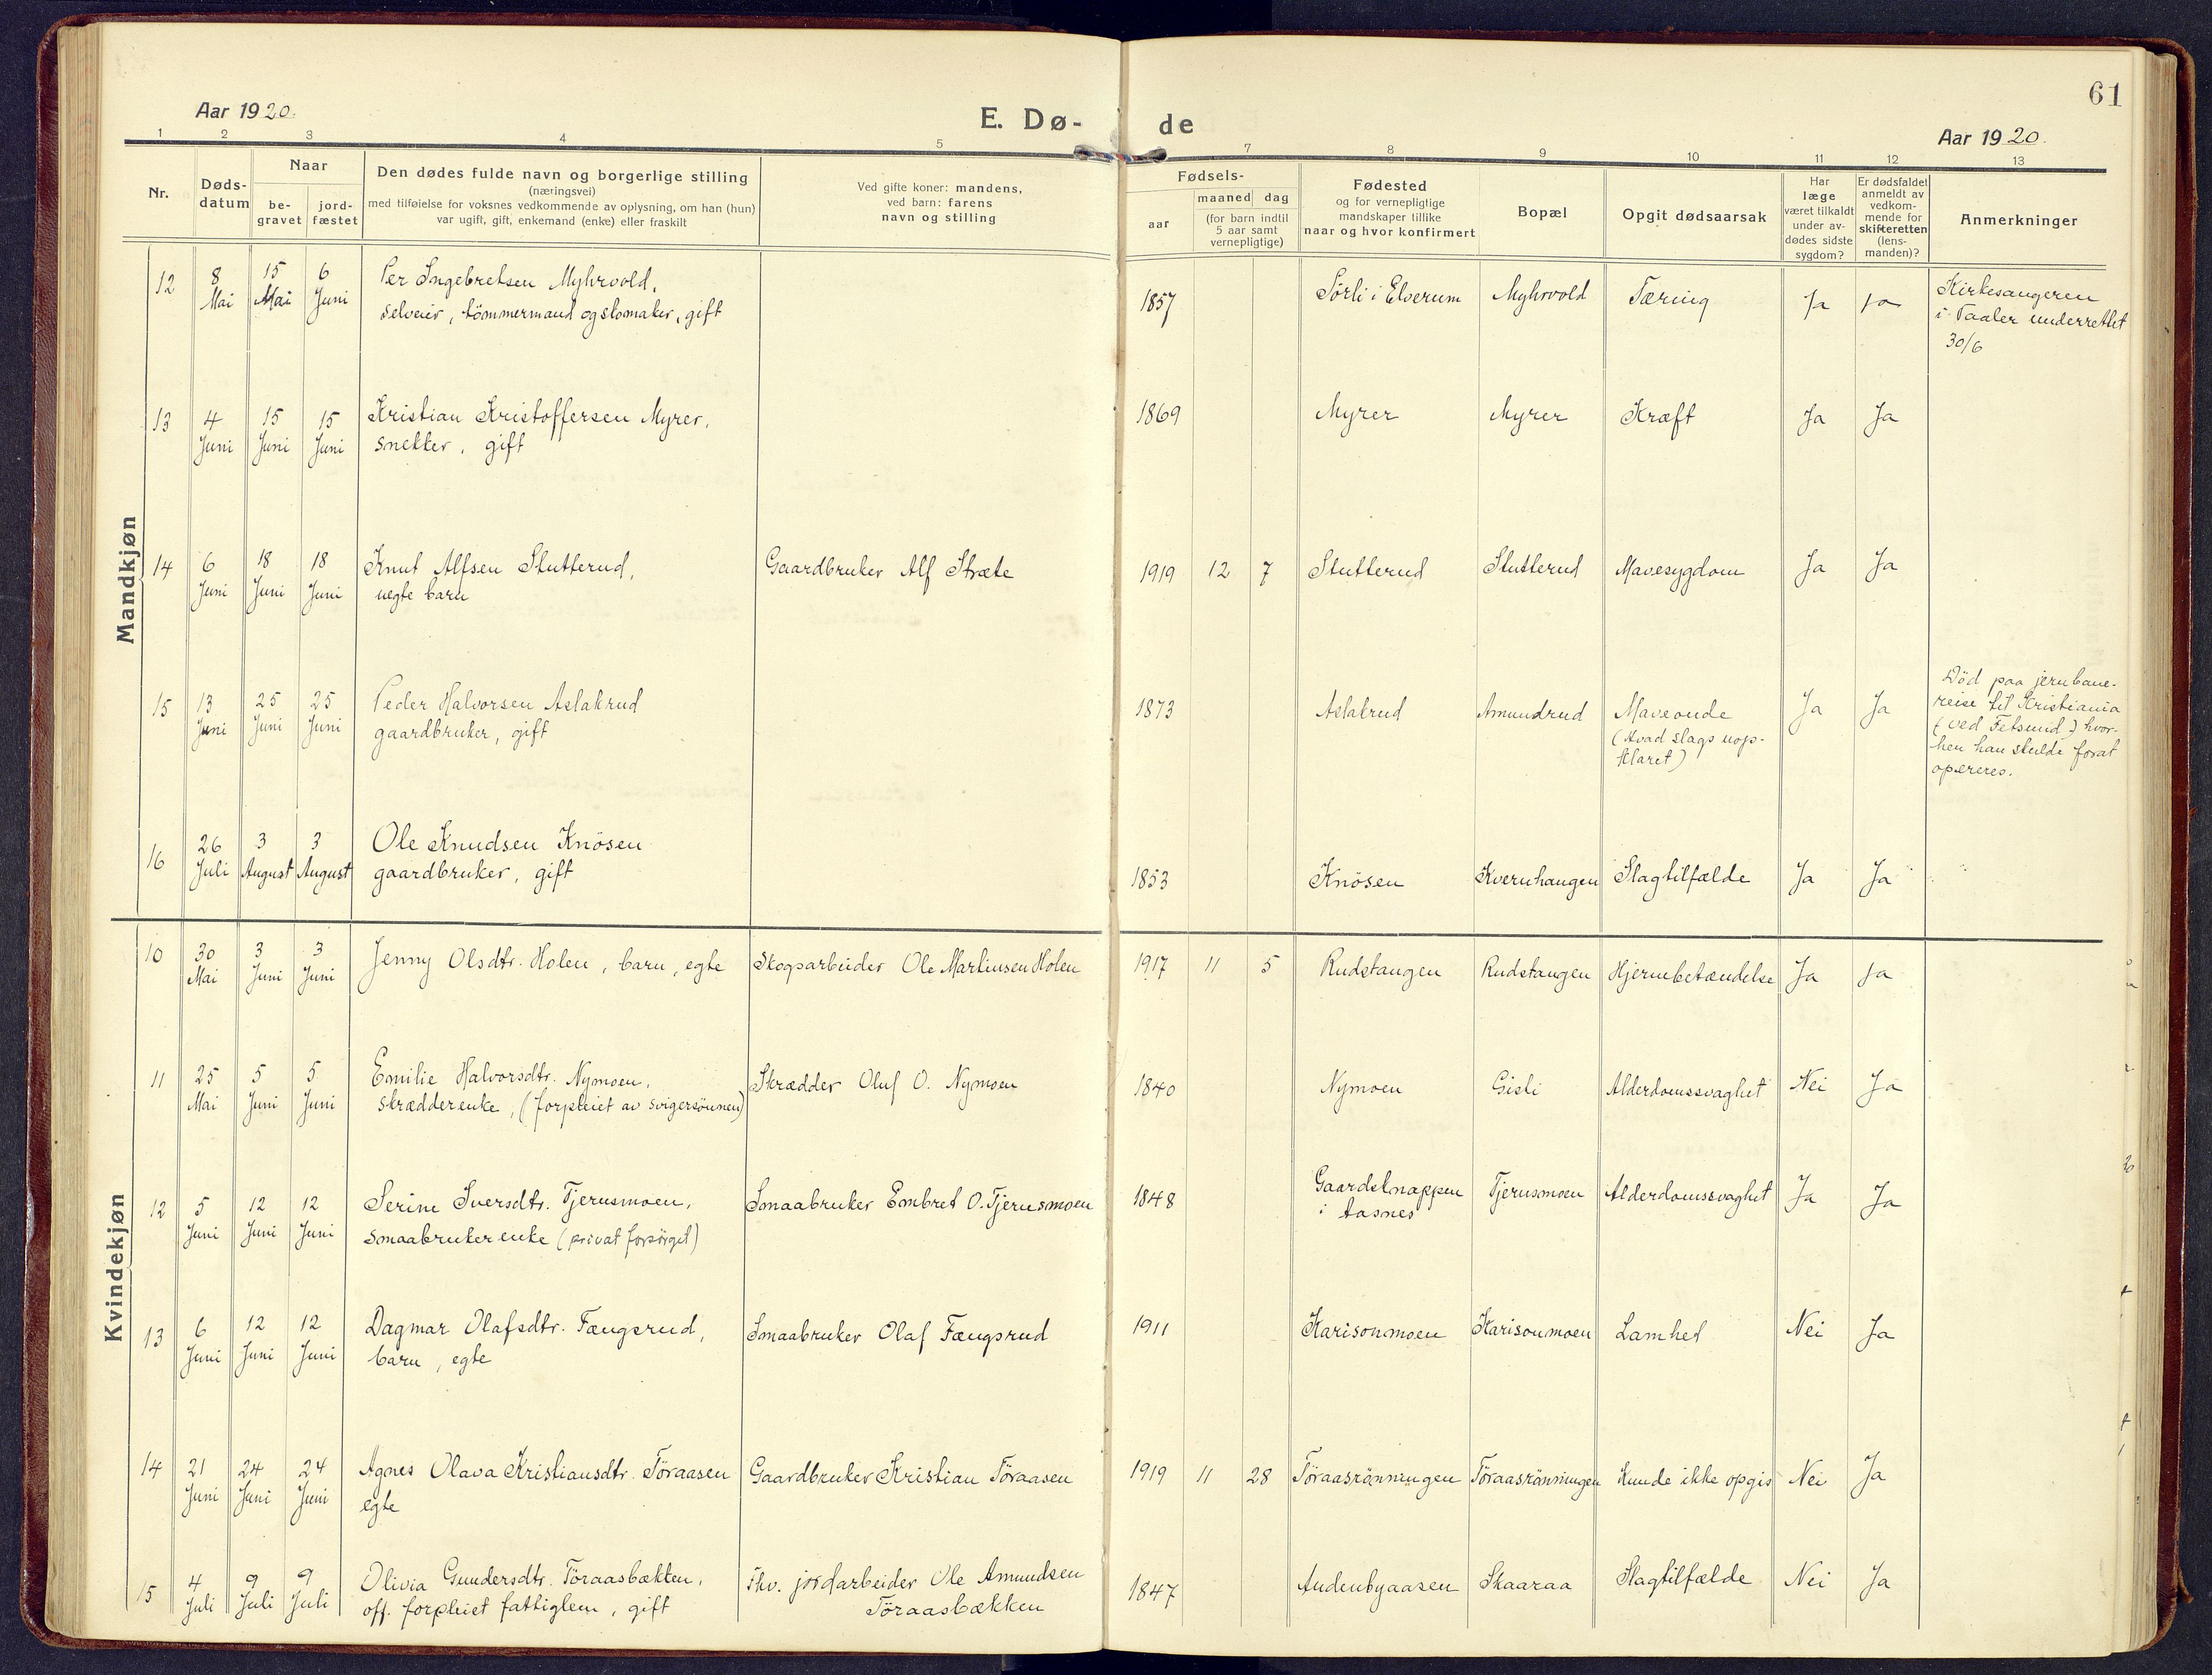 61
Aar 1920.
E. Dø-
de
Aar 1920.
1 2 3 4 5 7 8 9 10 11 12 13
Nr.
Døds-
datum
Naar
be-
gravet
jord-
fæstet
Den dødes fulde navn og borgerlige stilling
(næringsvei)
med tilføielse for voksnes vedkommende av oplysning, om han (hun)
var ugift, gift, enkemand (enke) eller fraskilt
Ved gifte koner: mandens,
ved barn: farens
navn og stilling
Fødsels-
aar
maaned dag
(for barn indtil
5 aar samt
vernepligtige)
Fødested
og for vernepligtige
mandskaper tillike
naar og hvor konfirmert
Bopæl
Opgit dødsaarsak
Har
læge
været tilkaldt
under av-
dødes sidste
sygdom?
Er dødsfaldet
anmeldt av
vedkom-
mende for
skifteretten
(lens-
manden)?
Anmerkninger
Mandkjøn
12
8
Mai
15
Mai
6
Juni
Per Ingebretsen Myhrvold,
selveier, tömmermand og slomaker, gift
1857
Sörli i Elverum
Myhrvold
Tæring
Ja
Ja
Kirkesangeren
i Vaaler underrettet
30/6
13
4
Juni
15
Juni
15
Juni
Kristian Kristoffersen Myrer,
snekker, gift
1869
Myrer
Myrer
Kræft
Ja
Ja
14
6
Juni
18
Juni
18
Juni
Knut Alfsen Stutterud,
uegte barn
Gaardbruker Alf Stræte
1919 12 7
Stutterud
Stutterud
Mavesygdom
Ja
Ja
15
13
Juni
25
Juni
25
Juni
Peder Halvorsen Aslakrud
gaardbruker, gift
1873
Aslakrud
Amundrud
Maveonde
(Hvad slags uop-
klaret)
Ja
Ja
Död paa jernbane-
reise til Kristiania
(ved Fetsund) hvor-
hen han skulde forat
opereres.
16
26
Juli
3
August
3
August
Ole Knudsen Knösen
gaardbruker, gift
1853
Knösen
Kvernhaugen
Slagtilfælde
Ja
Ja
Kvindekjøn
10
30
Mai
3
Juni
3
Juni
Jenny Olsdtr. Holen, barn, egte
Skogsarbeider Ole Martinsen Holen
1917 11 5
Rudstangen
Rudstangen
Hjernebetændelse
Ja
Ja
11
25
Mai
5
Juni
5
Juni
Emilie Halvorsdtr. Nymoen,
skrædderenke, (forpleiet av svigersönnen)
Skrædder Oluf O. Nymoen
1840
Nymoen
Gisli
Alderdomssvaghet
Nei
Ja
12
5
Juni
12
Juni
12
Juni
Serine Iversdtr. Tjernsmoen,
smaabrukerenke (privat forsörget)
Smaabruker Embret O. Tjernsmoen
1848
Gaardsknappen
i Aasnes
Tjernsmoen
Alderdomssvaghet
Ja
Ja
13
6
Juni
12
Juni
12
Juni
Dagmar Olafsdtr. Fængsrud,
barn, egte
Smaabruker Olaf Fængsrud
1911
Karisonmoen
Karisonmoen
Lamhet
Nei
Ja
14
21
Juni
24
Juni
24
Juni
Agnes Olava Kristiansdtr. Töraasen
egte
Gaardbruker Kristian Töraasen
1919 11 28
Töraasrönningen
Töraasrönningen
Kunde ikke opgis
Nei
Ja
15
4
Juli
9
Juli
9
Juli
Olivia Gundersdtr. Töraasbækken,
off. forpleiet fattiglem, gift
Fhv. jordarbeider Ole Amundsen
Töraasbækken
1847
Audenbyaasen
Skaaraa
Slagtilfælde
Nei
Ja